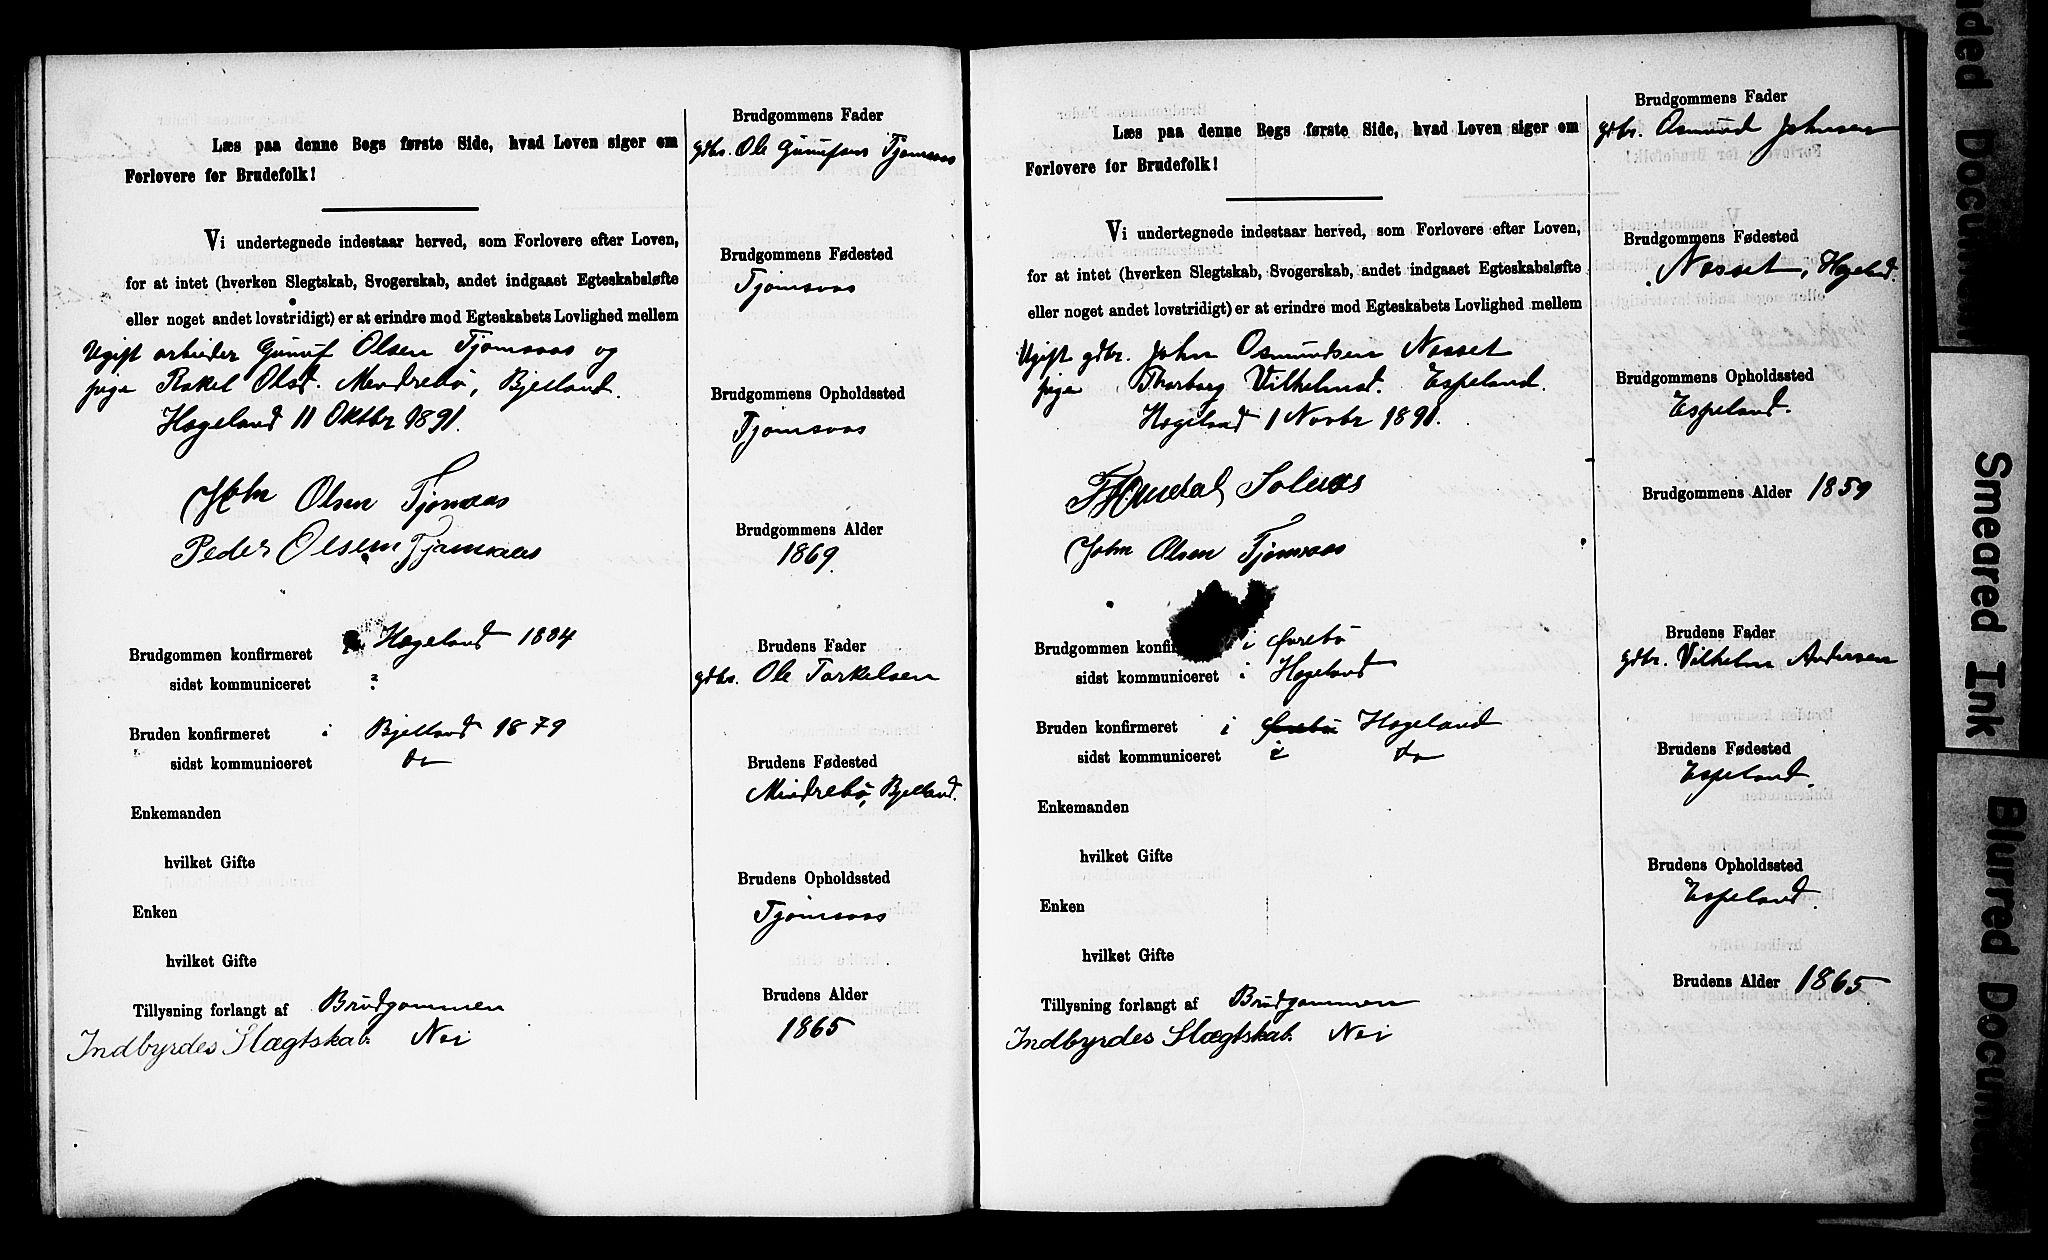 Læs paa denne Bogs første Side, hvad Loven siger om
Forlovere for Brudefolk!
Vi undertegnede indestaar herved, som Forlovere efter Loven,
for at intet (hverken Slegtskab, Svogerskab, andet indgaaet Egteskabsløfte
eller noget andet lovstridigt) er at erindre mod Egteskabets Lovlighed mellem
Ugift arbeider Gunuf Olsen Tjomsaas og
pige Rakel Olsd. Mindrebø, Bjelland.
Hægeland 11 Oktbr 1891.
John Olsen Tjomsaas
Peder Olsen Tjomsaas
Brudgommen konfirmeret i Hægeland 1884
sidst kommuniceret ?
Bruden konfirmeret i Bjelland 1879
sidst kommuniceret i do
Enkemanden
hvilket Gifte
Enken
hvilket Gifte
Tillysning forlangt af Brudgommen
Indbyrdes Slægtskab. Nei
Brudgommens Fader
gdbr. Ole Gunufsen Tjomsaas
Brudgommens Fødested
Tjomsaas
Brudgommens Opholdssted
Tjomsaas
Brudgommens Alder
1869.
Brudens Fader
gdbr. Ole Torkelsen
Brudens Fødested
Mindrebø, Bjelland.
Brudens Opholdssted
Tjomsaas
Brudens Alder
1865
Læs paa denne Bogs første Side, hvad Loven siger om
Forlovere for Brudefolk!
Vi undertegnede indestaar herved, som Forlovere efter Loven,
for at intet (hverken Slegtskab, Svogerskab, andet indgaaet Egteskabsløfte
eller noget andet lovstridigt) er at erindre mod Egteskabets Lovlighed mellem
Ugift gdbr. John Osmundsen Nasset
pige Thorborg Vilhelmsd. Espeland.
Hægeland 1 Novbr 1891.
John Olsen Tjomsaas
Brudgommen konfi i Øvrebø
sidst kommuniceret i Hægeland
Bruden konfirmeret i Øvrebø Hægeland
sidst kommuniceret i do
Enkemanden
hvilket Gifte
Enken
hvilket Gifte
Tillysning forlangt af Brudgommen
Indbyrdes Slægtskab. Nei
Brudgommens Fader
gdbr. Osmund Johnsen
Brudgommens Fødested
Nasset, Hægeland.
Brudgommens Opholdssted
Espeland.
Brudgommens Alder 1859
Brudens Fader
gdbr. Vilhelm Andersen
Brudens Fødested
Espeland.
Brudens Opholdssted
Espeland.
Brudens Alder 1865.
ded Docum
Smeared Ink
Blurred Docum